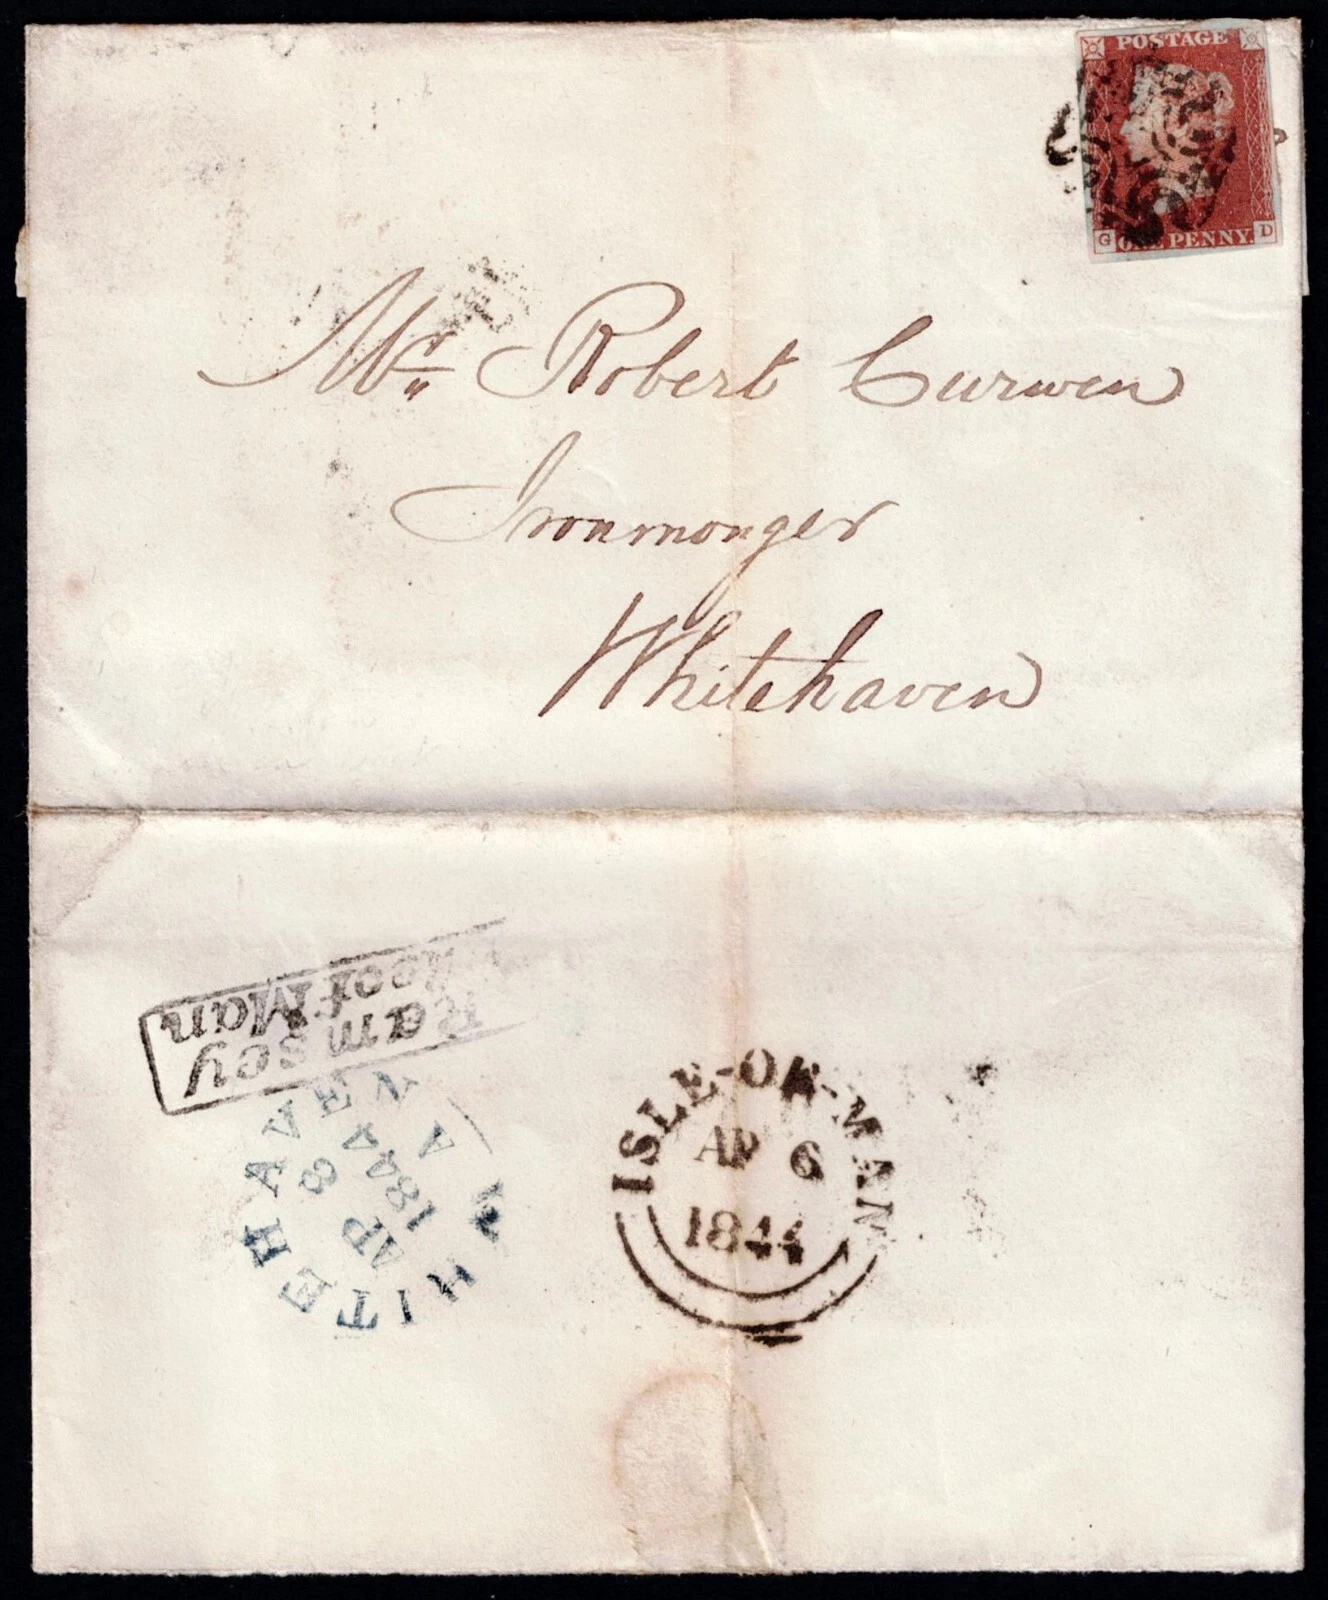 POSTAGE
G ONE PENNY. D
Mr Robert Curwen
Ironmonger
Whitehaven
Ramsey
Isle of Man
WHITEHAVEN
AP 8
1844
A
ISLE-OF-MAN
AP 6
1844